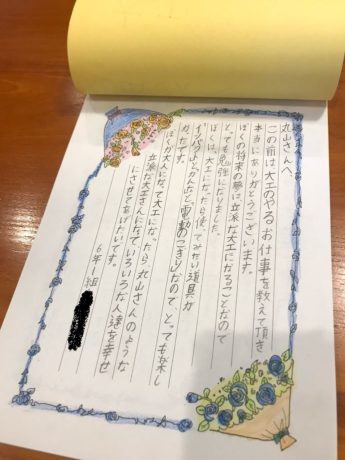 丸山さんへ
この前は大工のやるお仕事を教えて頂き
本当にありがとうございます。
ぼくの将来の夢は立派な大工になることなので
とても勉強になりました。
ぼくは、大工になったら使ってみたい道具が
インパクトとかんなと電動のこぎりなので、とっても楽し
かったです。
ぼくが大人になって大工になったら、丸山さんのような
立派な大工さんになっていろいろな人達を幸せ
にさせてあげたいです。
6年1組